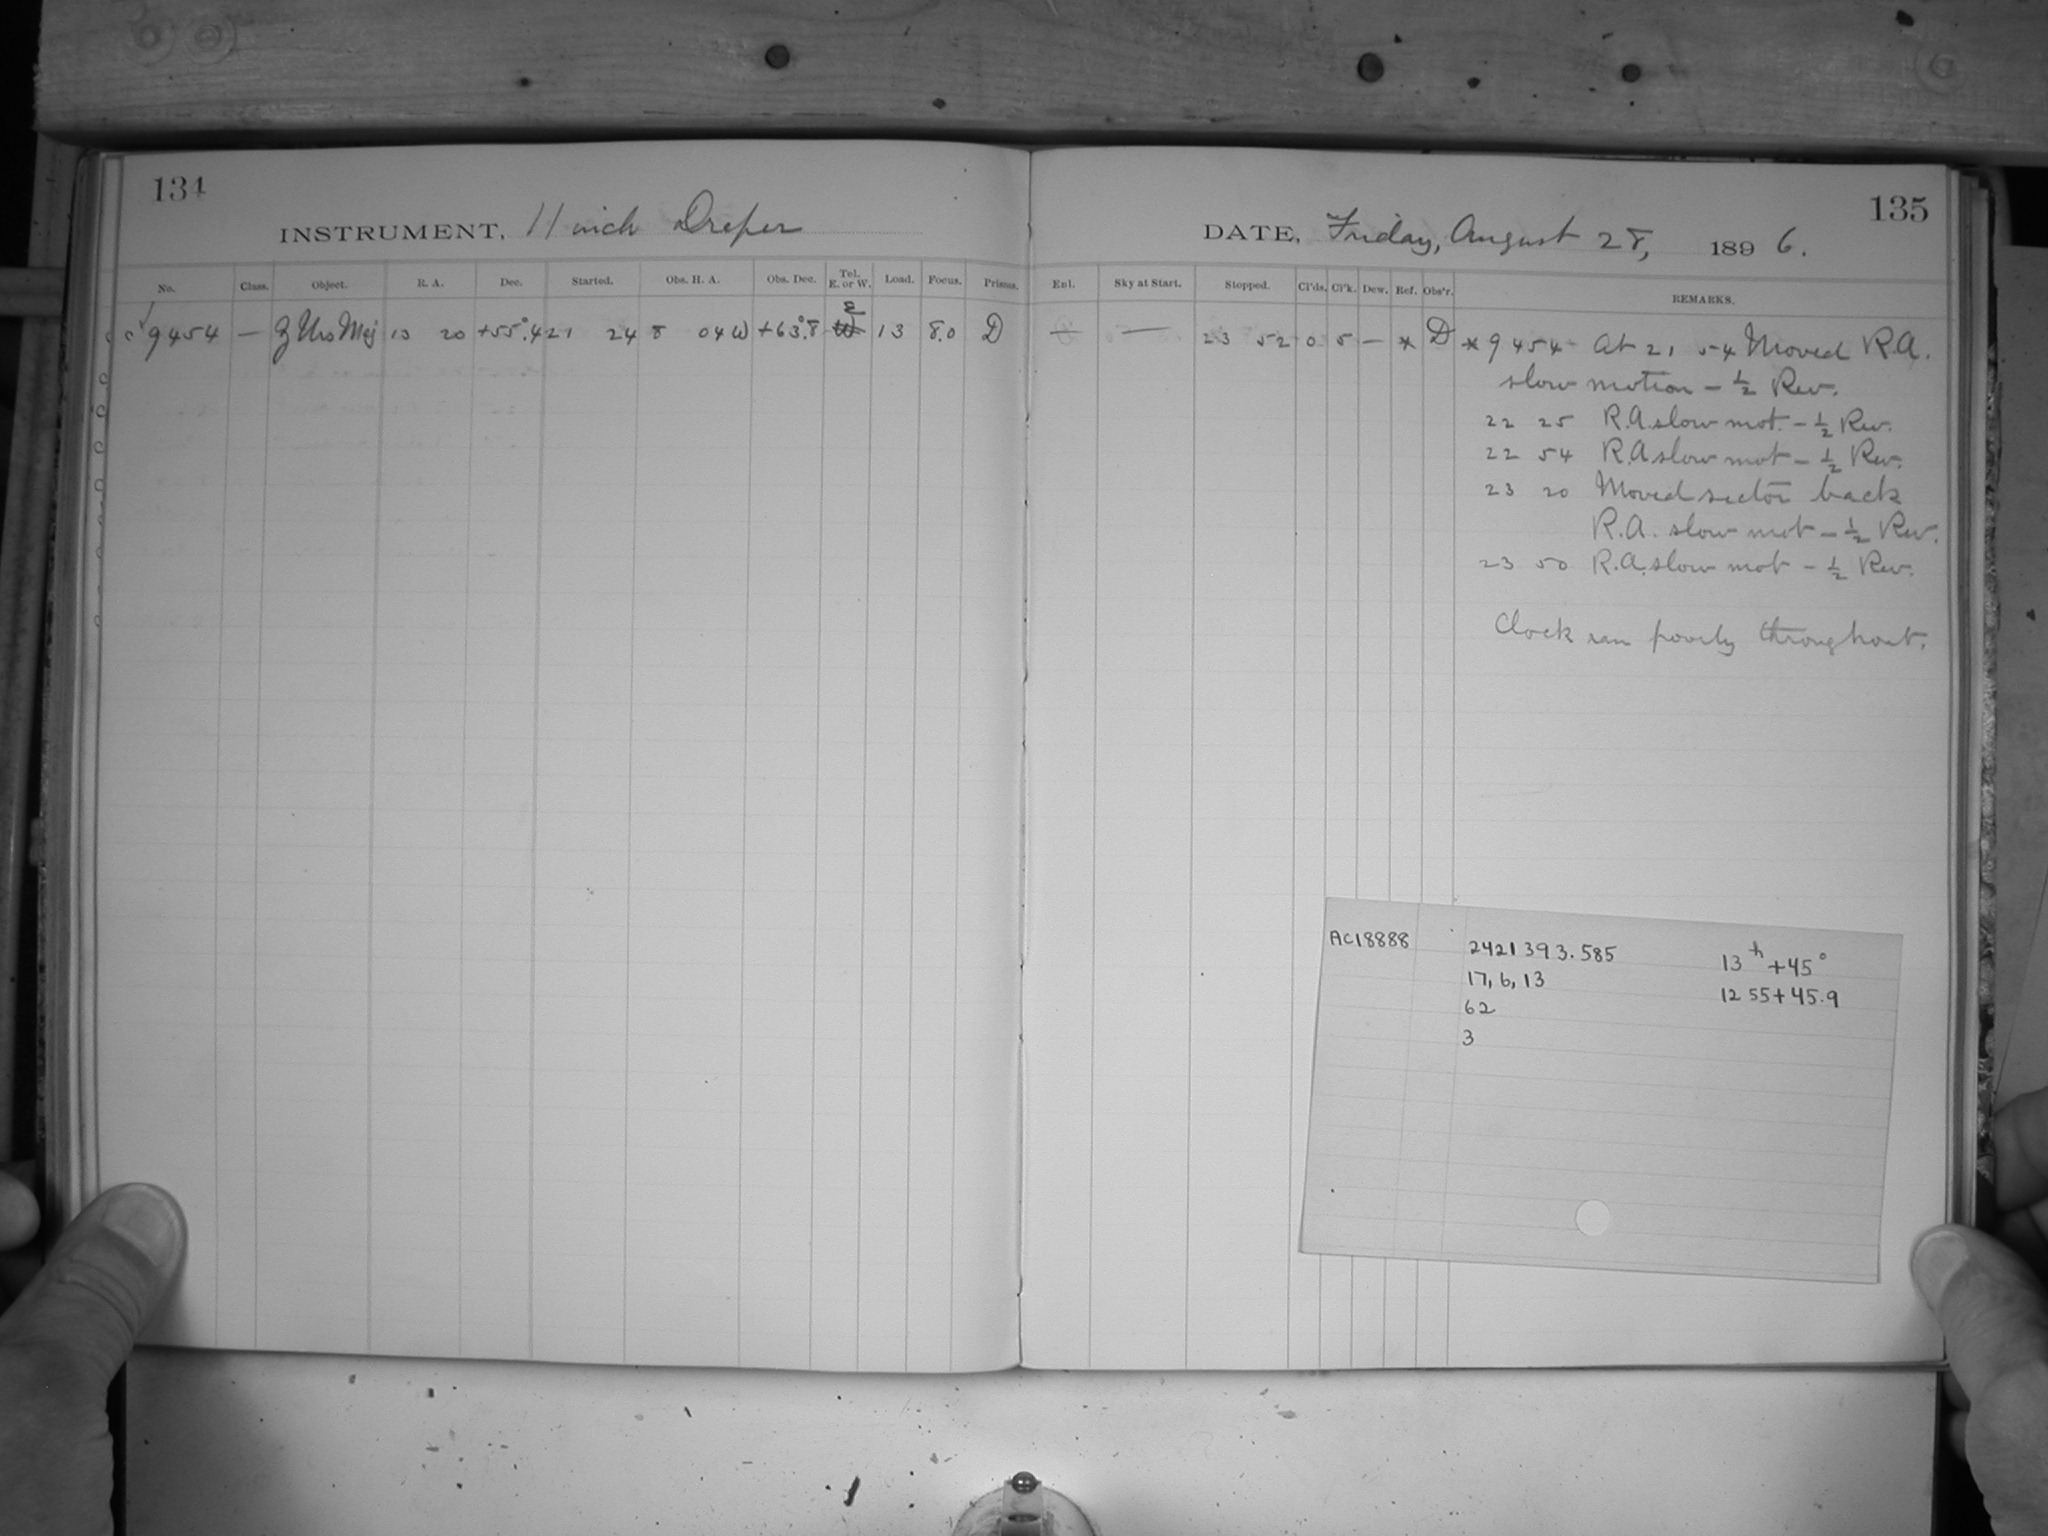 134
INSTRUMENT, 11 inch Draper
No. Class. Object. R. A. Dec. Started. Obs. H. A. Obs. Dec. Tel. E. or W. Load. Focus. Prisms.
E
c √ 9454 — ζ Urs Maj 13 20 +55°.4 21 24 8 04 W +63°.8 W 13 8.0 D
135
DATE, Friday, August 28, 1896.
Enl. Sky at Start. Stopped. Cl'ds. Cl'k. Dew. Ref. Obs'r. REMARKS.
— 23 52 0 5 — * D * 9454 At 21 54 Moved R.A.
slow motion – ½ Rev.
22 25 R.A. slow mot. – ½ Rev.
22 54 R.A slow mot – ½ Rev.
23 20 Moved sector back
R.A. slow mot – ½ Rev.
23 50 R.A. slow mot – ½ Rev.
Clock ran poorly throughout.
AC18888 2421393.585 13h +45°
17, 6, 13 12 55 + 45.9
62
3